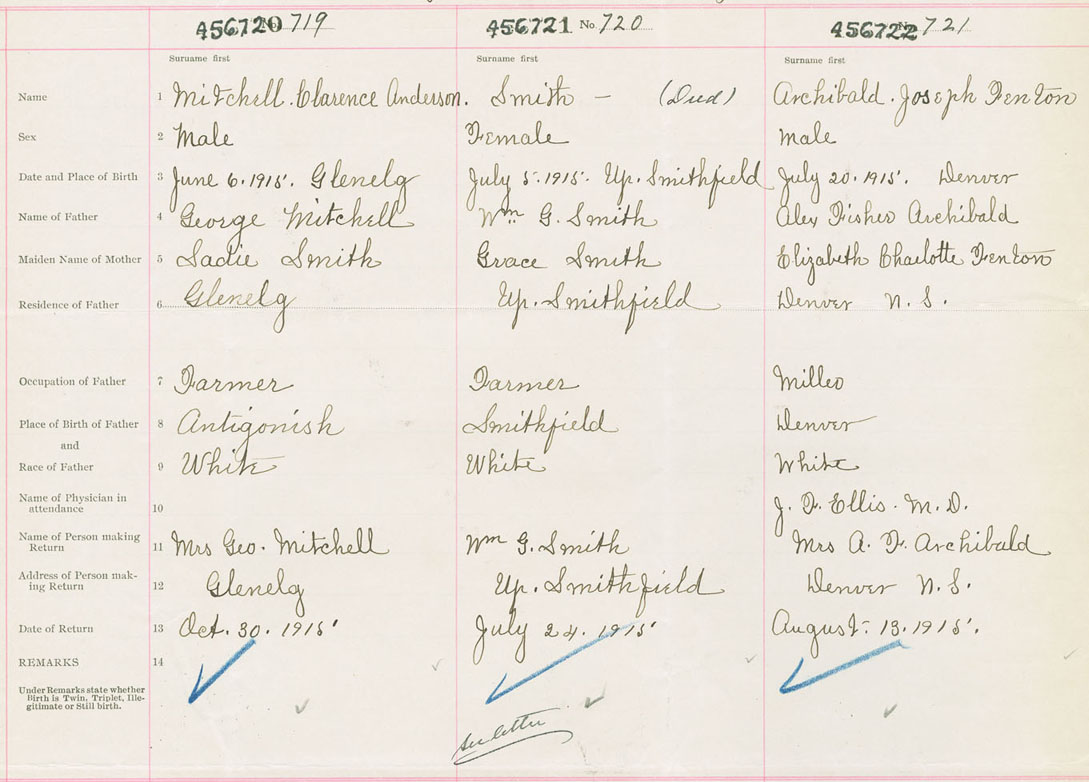 456720 No. 719 456721 No. 720 456722 No. 721
Surname first Surname first Surname first
Name 1 Mitchell. Clarence Anderson. Smith — (Died) Archibald. Joseph Fenton
Sex 2 Male Female Male
Date and Place of Birth 3 June 6. 1915. Glenelg July 5. 1915. Up. Smithfield July 20. 1915. Denver
Name of Father 4 George Mitchell Wm G. Smith Alex Fisher Archibald
Maiden Name of Mother 5 Sadie Smith Grace Smith Elizabeth Charlotte Fenton
Residence of Father 6 Glenelg Up. Smithfield Denver N. S.
Occupation of Father 7 Farmer Farmer Miller
Place of Birth of Father 8 Antigonish Smithfield Denver
and
Race of Father 9 White White White
Name of Physician in
attendance 10 J. F. Ellis. M. D.
Name of Person making
Return 11 Mrs Geo. Mitchell Wm G. Smith Mrs A. F. Archibald
Address of Person mak-
ing Return 12 Glenelg Up. Smithfield Denver N. S.
Date of Return 13 Oct. 30. 1915 July 24. 1915 August. 13. 1915.
REMARKS 14
Under Remarks state whether
Birth is Twin, Triplet, Ille-
gitimate or Still birth.
see letter